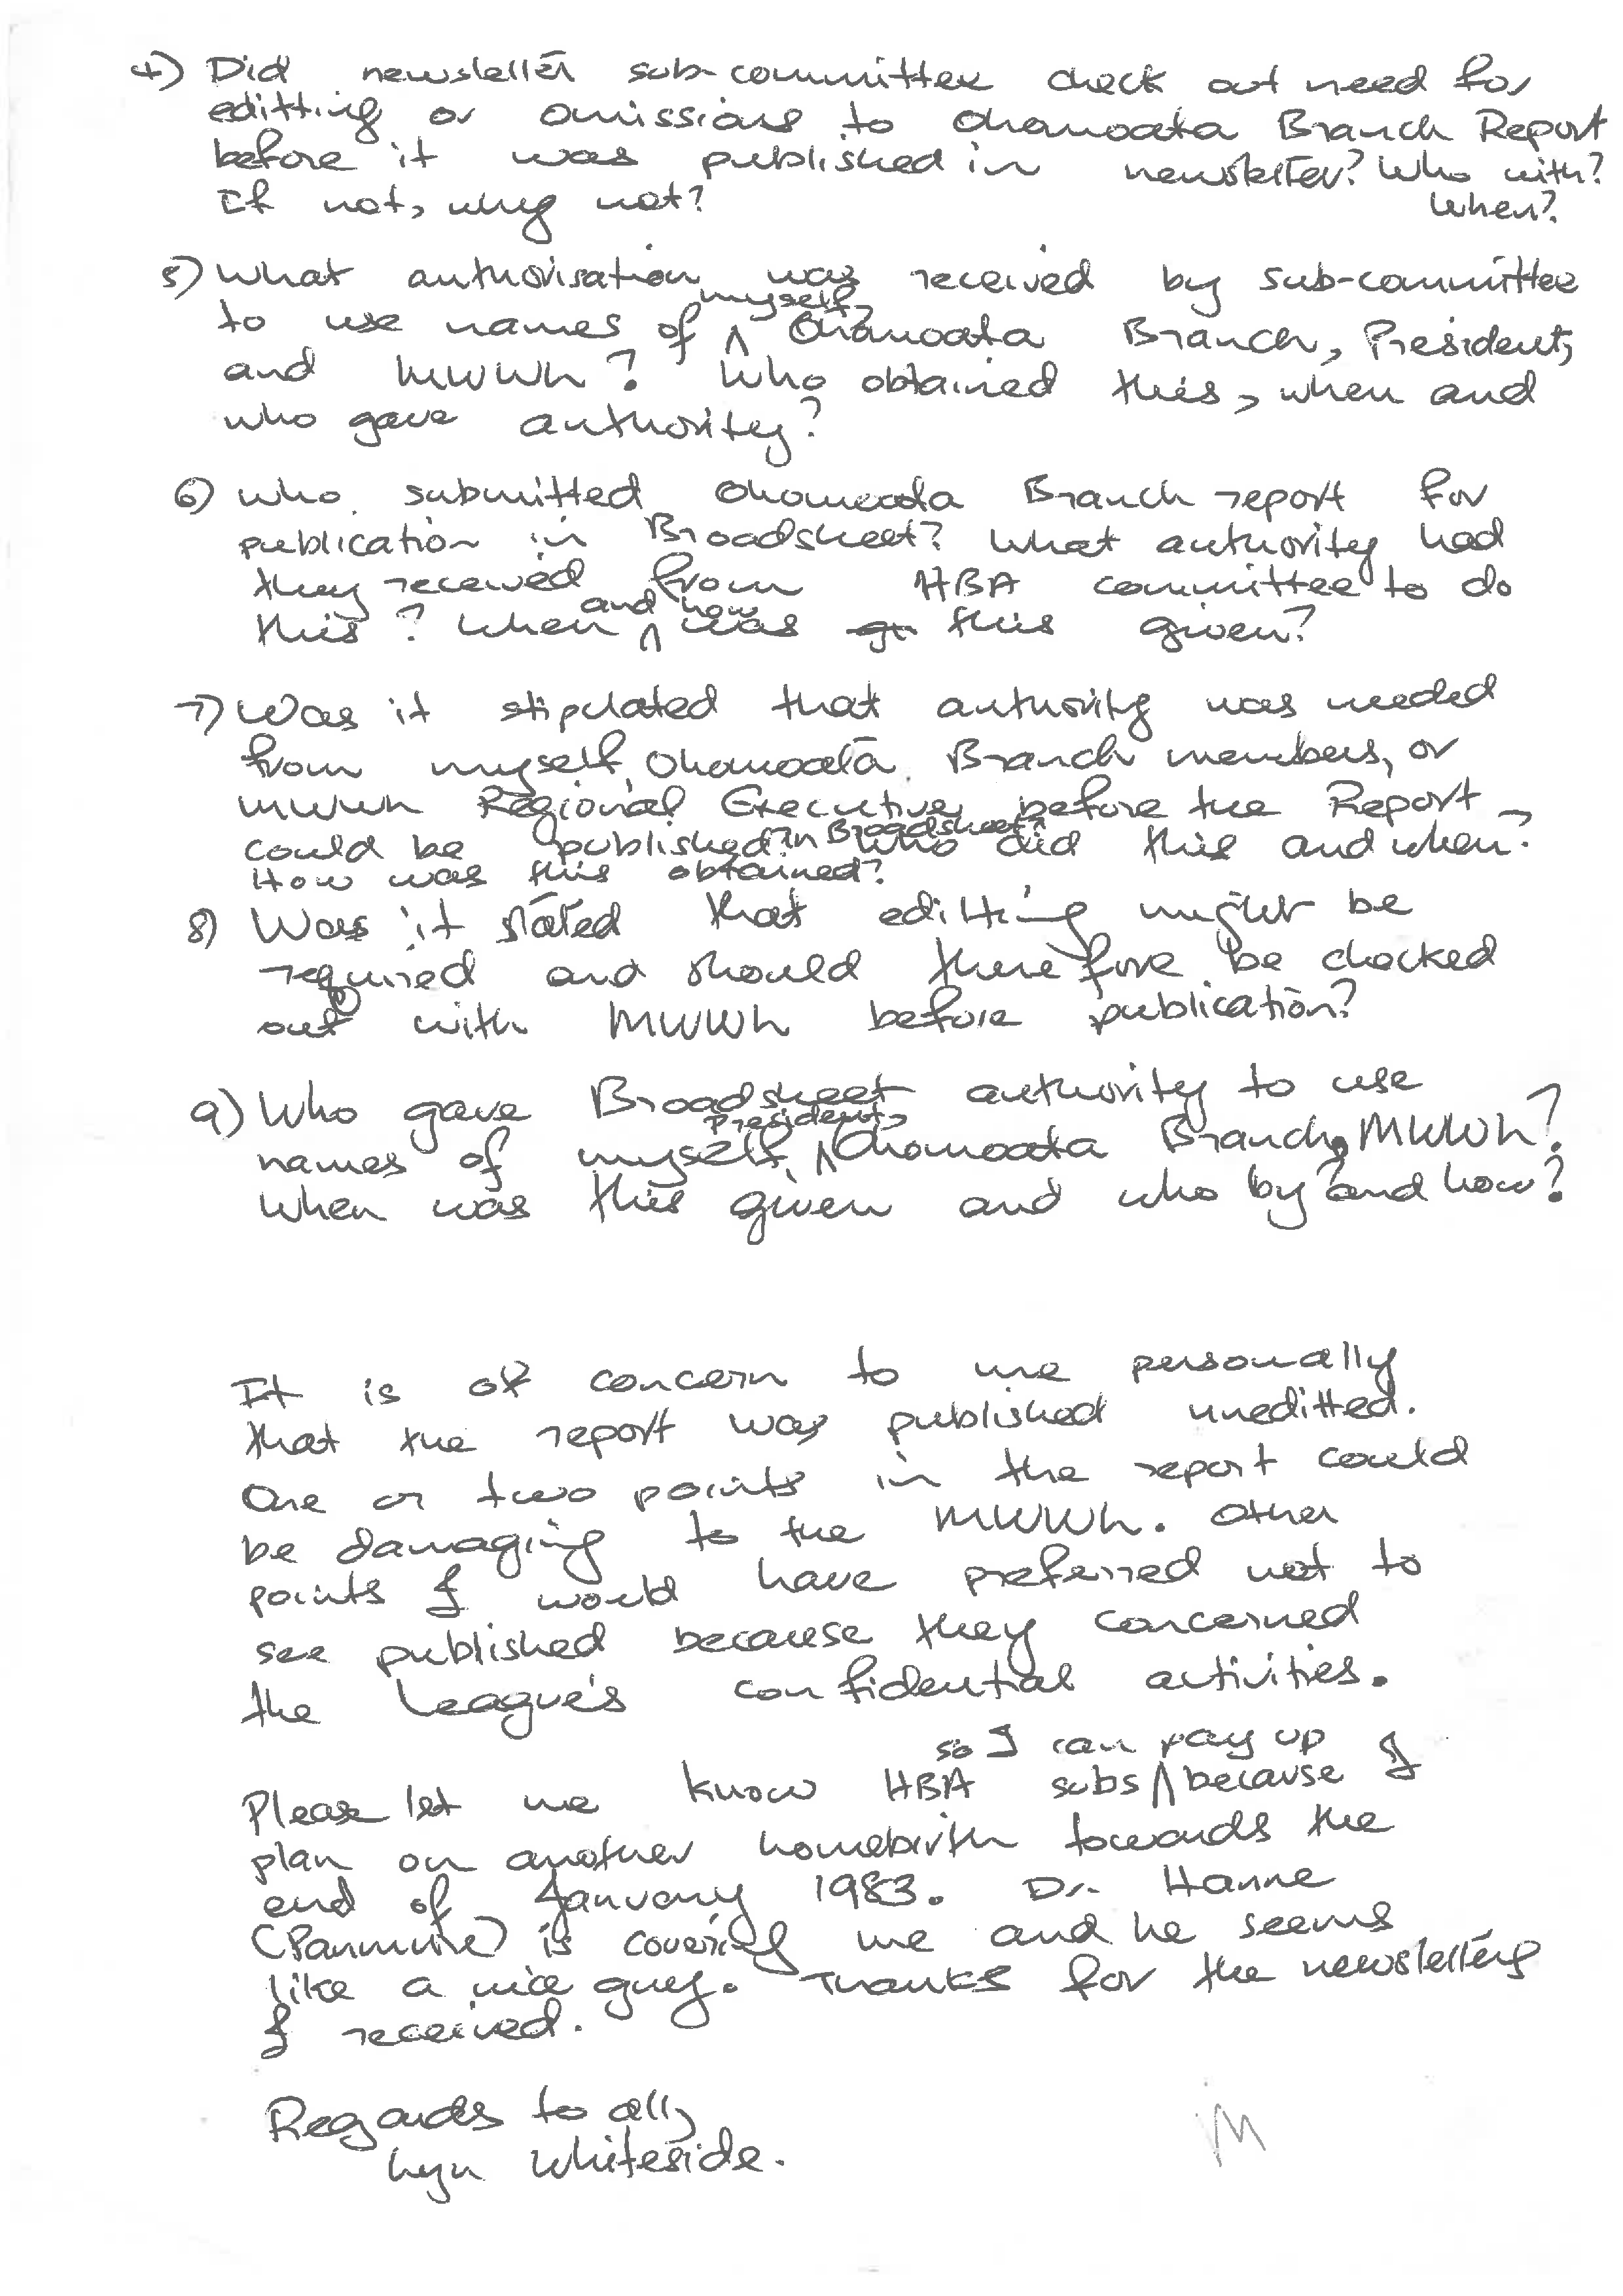 4) Did newsletter sub-committee check out need for
editting or omissions to Ohanoata Branch Report
before it was published in newsletter? Who with?
If not, why not? When?
5) What authorisation was received by sub-committee
to use names of myself, Ohanoata Branch, President,
and MWWh? Who obtained this, when and
who gave authority?
6) Who submitted Ohanoata Branch report for
publication in Broadsheet? What authority had
they received from HBA committee to do
this? When and how was this given?
7) Was it stipulated that authority was needed
from myself, Ohanoata Branch members, or
MWWh Regional Executive before the Report
could be published in Broadsheet? Who did this and when?
How was this obtained?
8) Was it stated that editting might be
required and should therefore be checked
out with MWWh before publication?
9) Who gave Broadsheet authority to use
names of myself, President, Ohanoata Branch, MWWh?
When was this given and who by? and how?
It is of concern to me personally
that the report was published uneditted.
One or two points in the report could
be damaging to the MWWh. Other
points I would have preferred not to
see published because they concerned
the League's confidential activities.
Please let me know HBA subs so I can pay up because I
plan on another homebirth towards the
end of January 1983. Dr. Hanne
(Panmure) is covering me and he seems
like a nice guy. Thanks for the newsletters
I received.
Regards to all,
Lyn Whiteside.